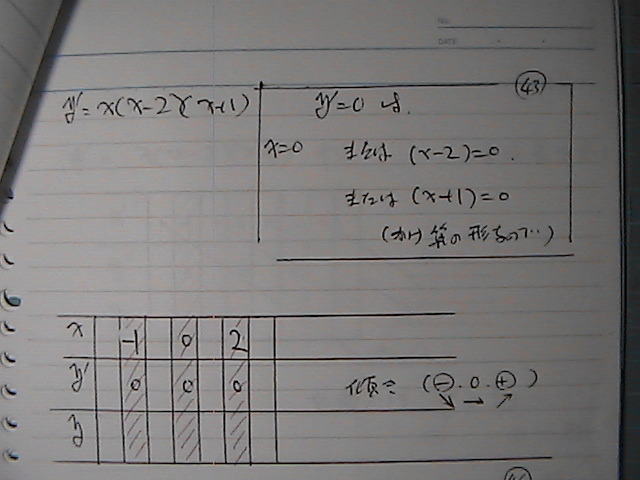 No.
DATE
㊸
y'=x(x-2)(x+1)
y'=0 は.
x=0 または (x-2)=0.
または (x+1)=0
(かけ算の形なので…)
x -1 0 2
y' 0 0 0
傾き (⊖.0.⊕)
↘ → ↗
y